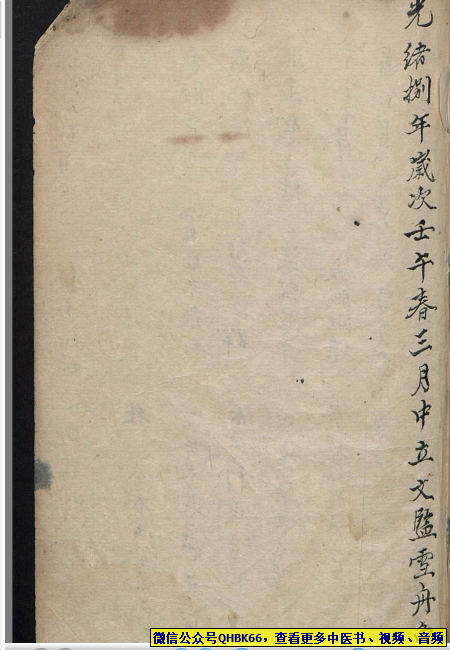 光緒捌年歲次壬午春三月中立文監雪舟
微信公众号QHBK66，查看更多中医书、视频、音频